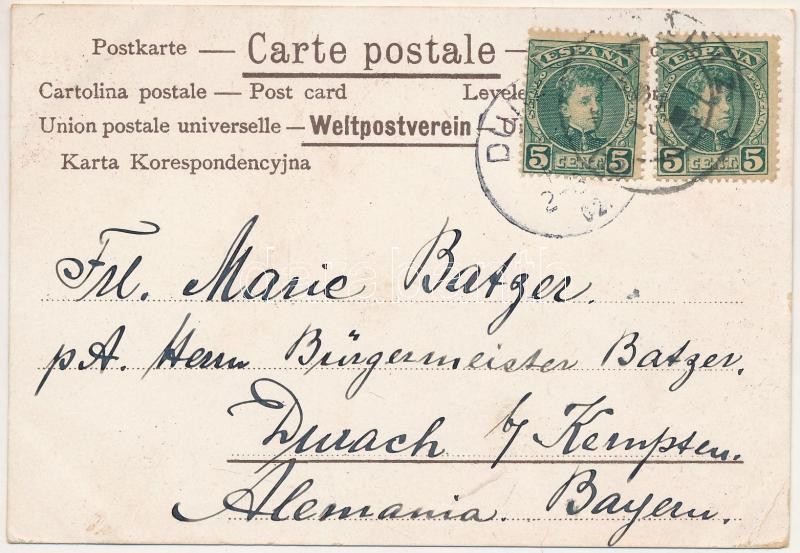 Postkarte — Carte postale —
Cartolina postale — Post card Levele
Union postale universelle — Weltpostverein —
Karta Korespondencyjna
ESPAÑA ESPAÑA
5 CENT. 5 5 CENT. 5
DU
02.
Frl. Marie Batzer.
pA. Herrn Bürgermeister Batzer.
Durach b/ Kempten.
Alemania. Bayern.